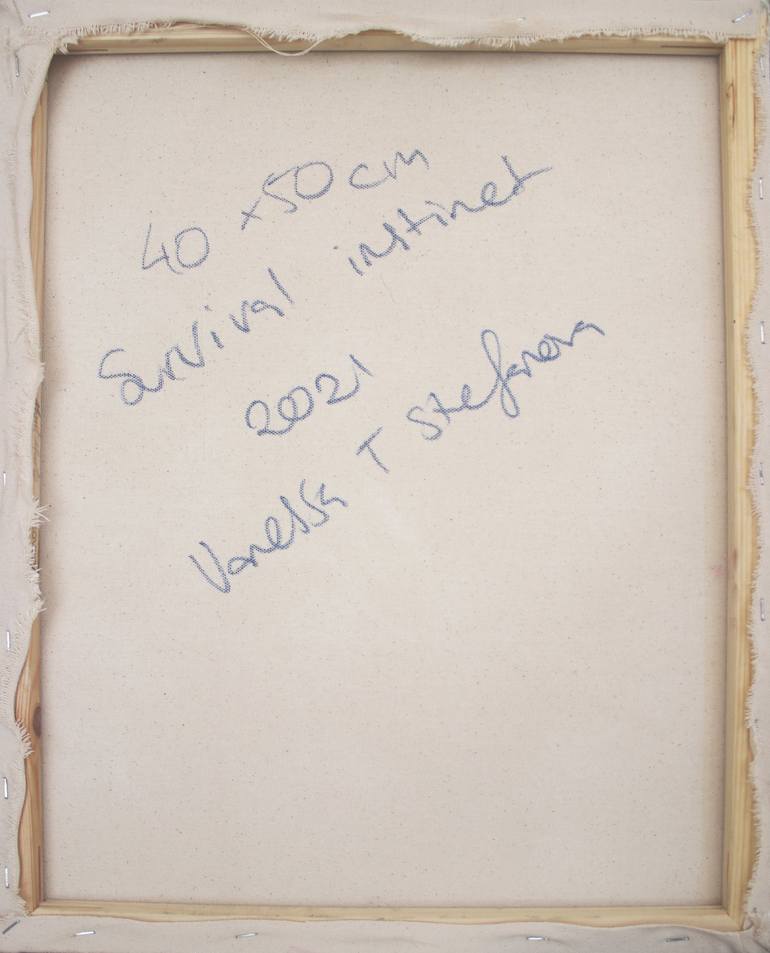 40 x 50 cm
Survival instinct
2021
Vanessa T Stefanova